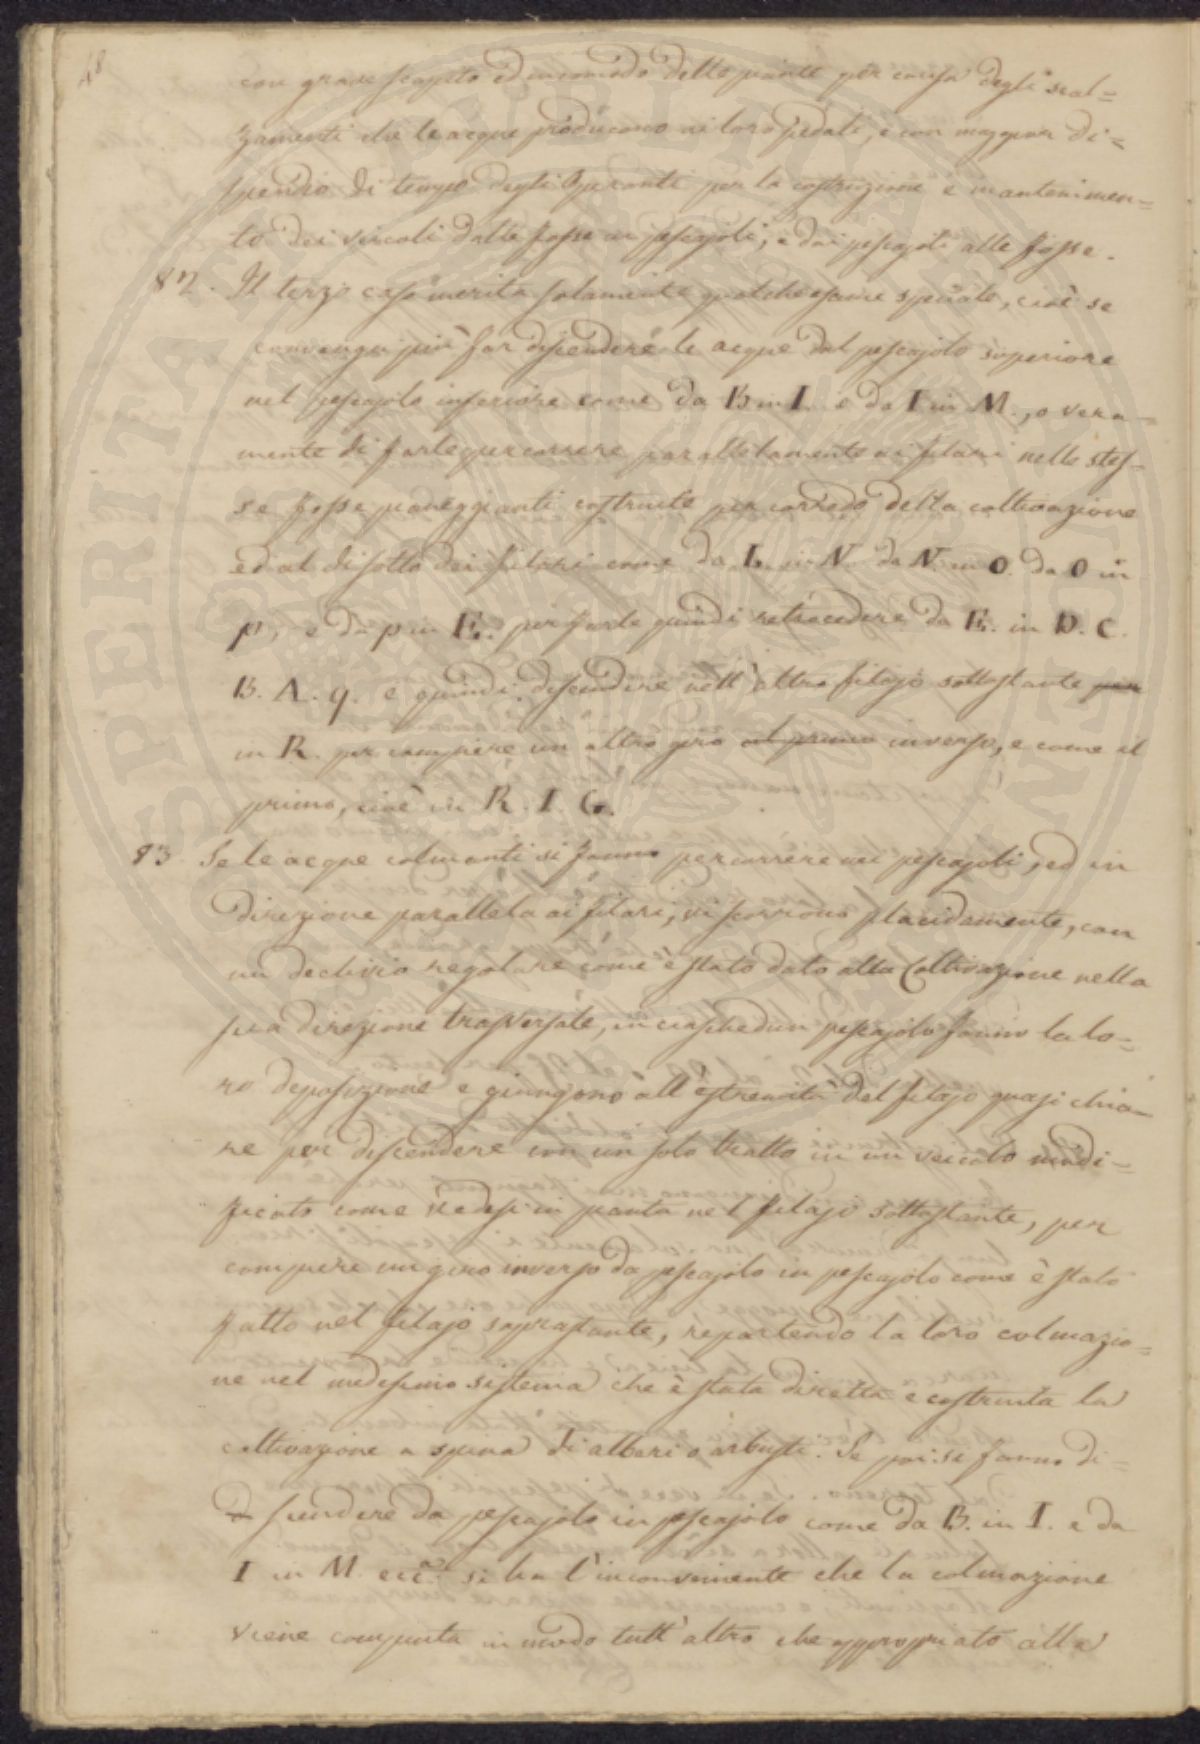 48
con grave scapito ed incomodo delle piante per causa degli scal=
zamenti che le acque producono ai loro pedali, e con maggior di=
spendio di tempo degli Operanti per la costruzione e mantenimen=
to dei veicoli dalle fosse ai pescajoli, e dai pescajoli alle fosse.
82. Il terzo caso merita solamente qualche esame speciale, cioè se
convenga più far discendere le acque dal pescajolo superiore
nel pescajolo inferiore come da B in I. e da I in M., o vera=
mente di farle percorrere parallelamente ai filari nelle stes=
se fosse pianeggianti costruite per corredo della coltivazione
ed al di sotto dei filari come da L. in N. da N. in O. da O in
p, e da p in E. per farle quindi retrocedere da E. in D. C.
B. A. q. e quindi discendere nell'altro filajo sottostante per
in R. per compiere un altro giro al primo inverso, e come il
primo, cioè in R. I. G.
83. Se le acque colmanti si fanno percorrere nei pescajoli, ed in
direzione parallela ai filari, vi scorrono placidamente, con
un declivio regolare come è stato dato alla Coltivazione nella
sua direzione trasversale, in ciaschedun pescajolo fanno la lo=
ro deposizione e giungono all'estremità del filajo quasi chia=
re per discendere con un solo tratto in un veicolo modi=
ficato come vedesi in pianta nel filajo sottostante, per
compiere un giro inverso da pescajolo in pescajolo come è stato
fatto nel filajo soprastante, repartendo la loro colmazio=
ne nel medesimo sistema che è stata diretta e costruita la
coltivazione a spina di alberi o arbusti. Se poi si fanno di=
scendere da pescajolo in pescajolo come da B. in I. e da
I in M. ecc. si ha l'inconveniente che la colmazione
viene compiuta in modo tutt'altro che appropriato alla
SPERITATE PUBLICA